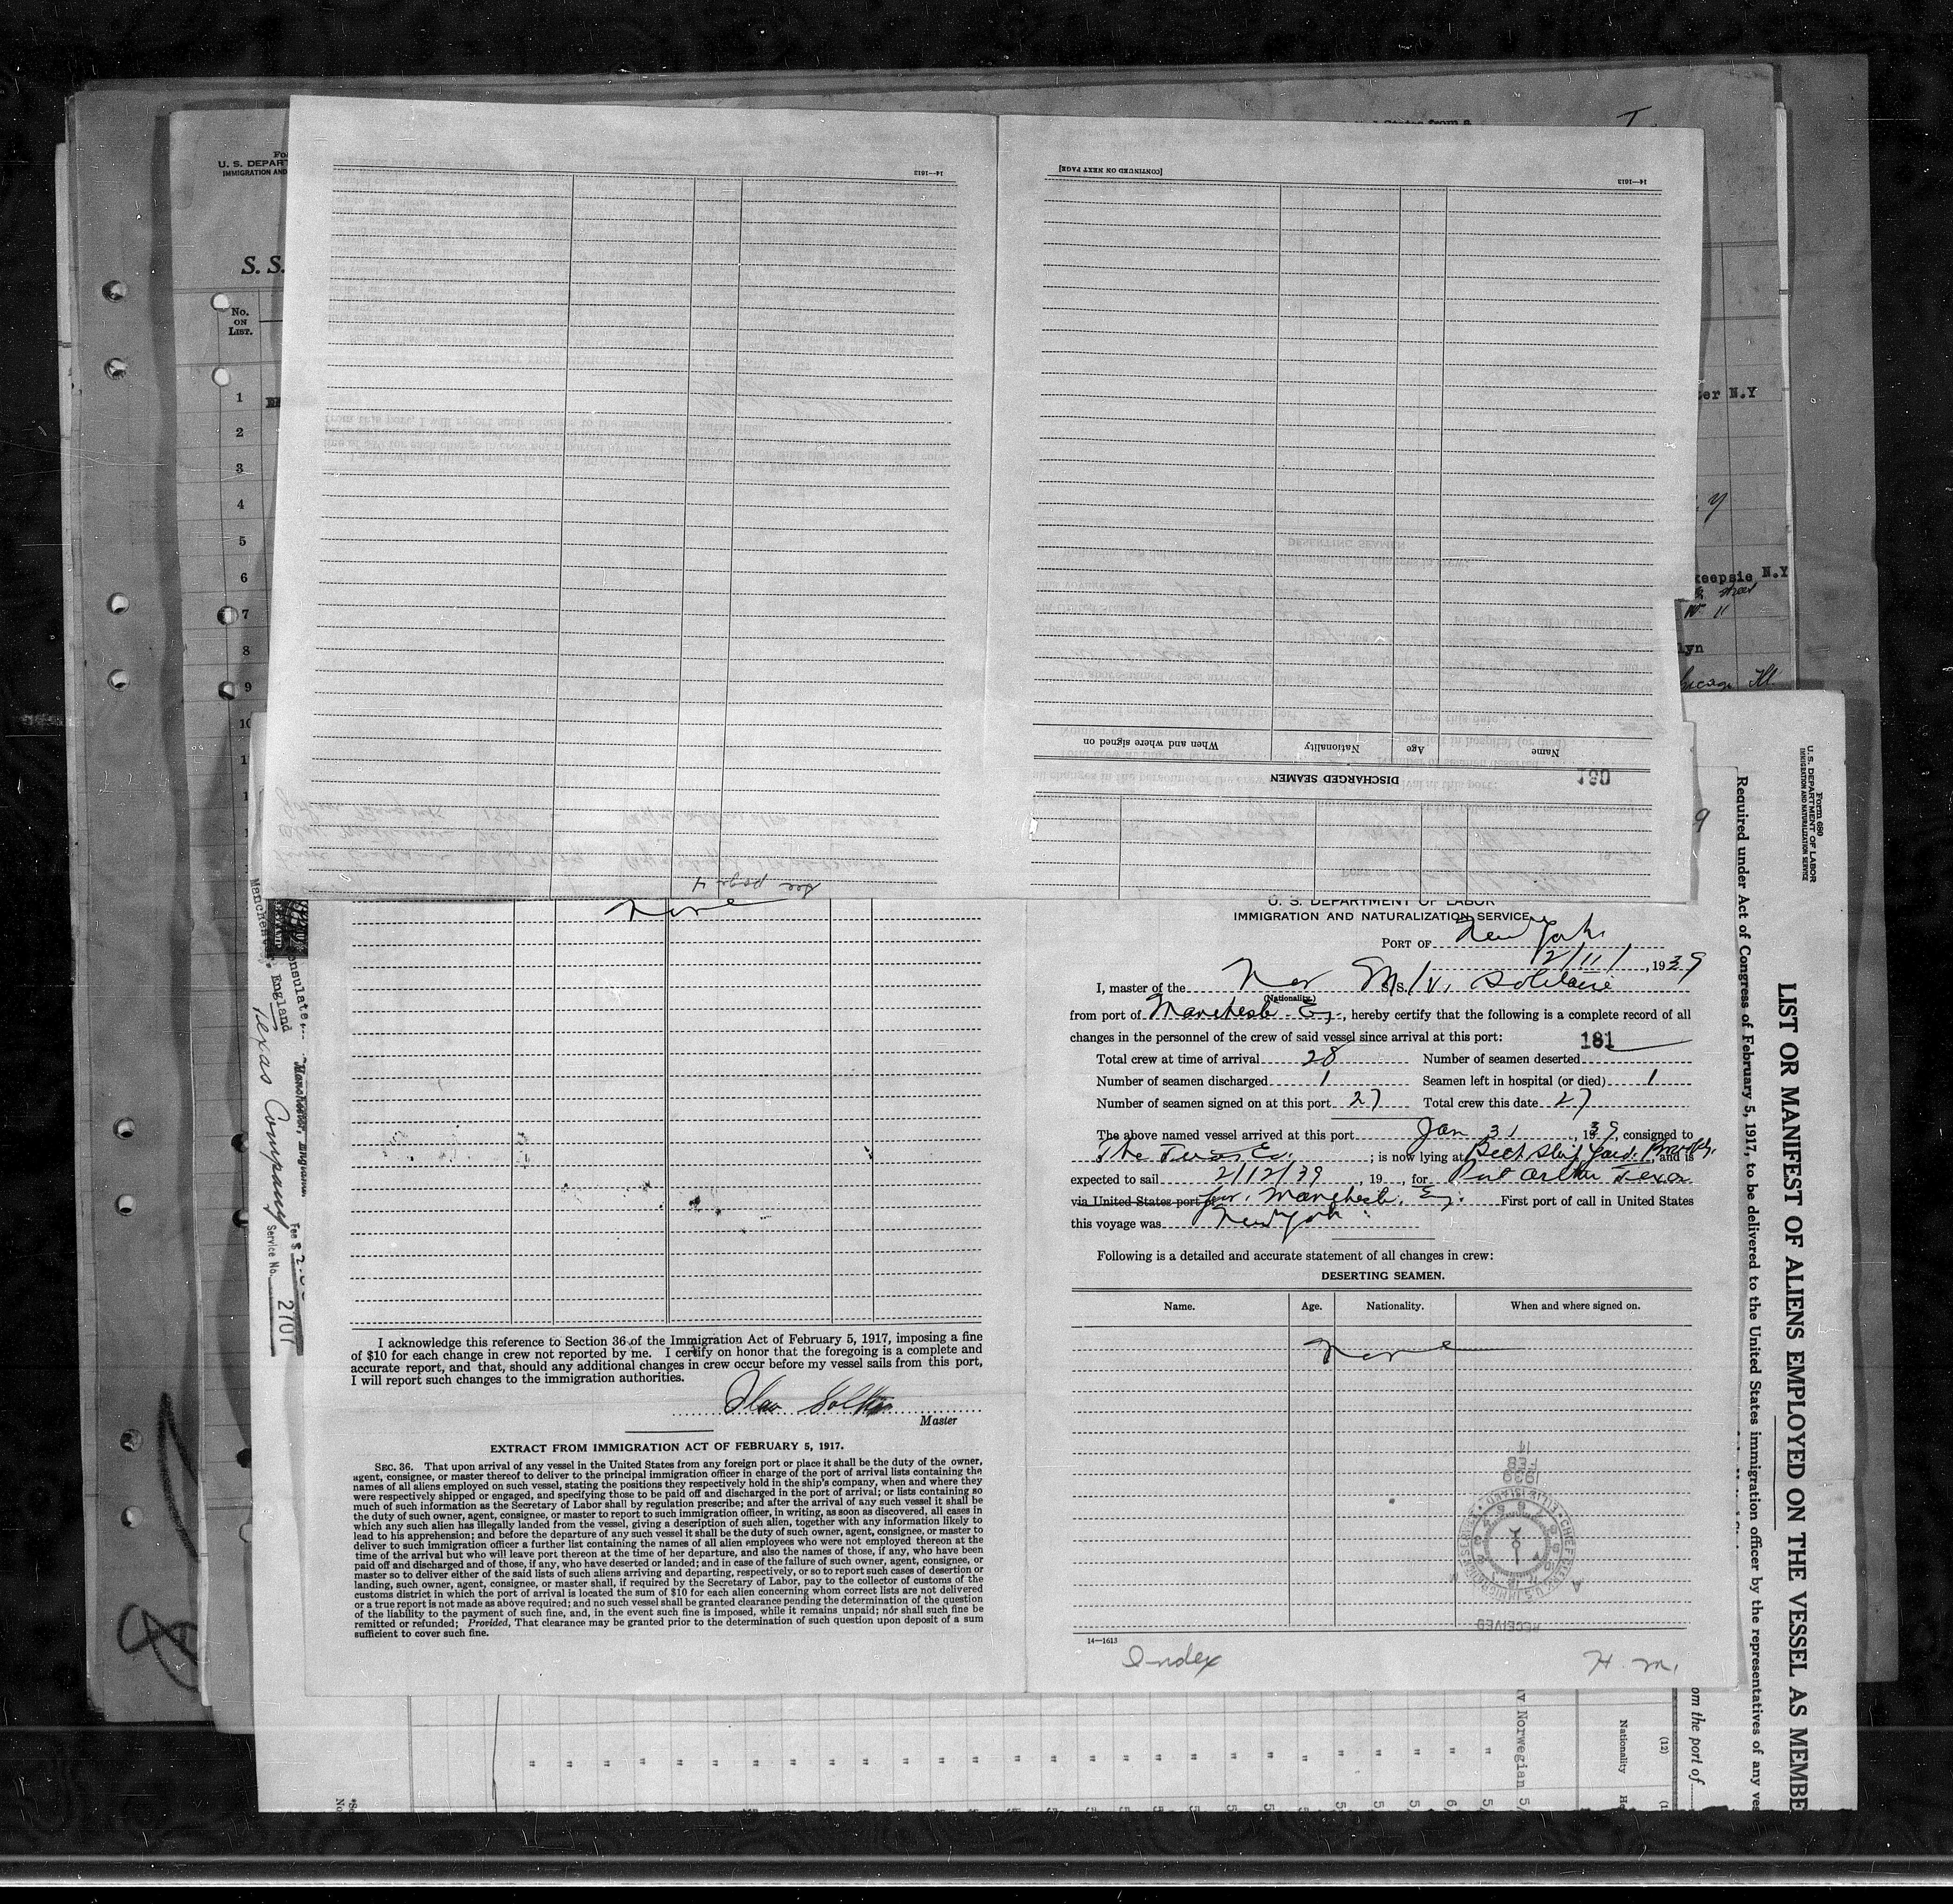 U. S. DEPART
IMMIGRATION AND
S. S.
No.
ON
LIST.
1
2
3
4
5
6
7
8
9
14—1613
[CONTINUED ON NEXT PAGE]
14—1613
Name
Age
Nationality
When and where signed on
DISCHARGED SEAMEN
180
see page 4
er N.Y
keepsie N.Y
lyn
None
I acknowledge this reference to Section 36 of the Immigration Act of February 5, 1917, imposing a fine
of $10 for each change in crew not reported by me. I certify on honor that the foregoing is a complete and
accurate report, and that, should any additional changes in crew occur before my vessel sails from this port,
I will report such changes to the immigration authorities.
Master
EXTRACT FROM IMMIGRATION ACT OF FEBRUARY 5, 1917.
SEC. 36. That upon arrival of any vessel in the United States from any foreign port or place it shall be the duty of the owner,
agent, consignee, or master thereof to deliver to the principal immigration officer in charge of the port of arrival lists containing the
names of all aliens employed on such vessel, stating the positions they respectively hold in the ship's company, when and where they
were respectively shipped or engaged, and specifying those to be paid off and discharged in the port of arrival; or lists containing so
much of such information as the Secretary of Labor shall by regulation prescribe; and after the arrival of any such vessel it shall be
the duty of such owner, agent, consignee, or master to report to such immigration officer, in writing, as soon as discovered, all cases in
which any such alien has illegally landed from the vessel, giving a description of such alien, together with any information likely to
lead to his apprehension; and before the departure of any such vessel it shall be the duty of such owner, agent, consignee, or master to
deliver to such immigration officer a further list containing the names of all alien employees who were not employed thereon at the
time of the arrival but who will leave port thereon at the time of her departure, and also the names of those, if any, who have been
paid off and discharged and of those, if any, who have deserted or landed; and in case of the failure of such owner, agent, consignee, or
master so to deliver either of the said lists of such aliens arriving and departing, respectively, or so to report such cases of desertion or
landing, such owner, agent, consignee, or master shall, if required by the Secretary of Labor, pay to the collector of customs of the
customs district in which the port of arrival is located the sum of $10 for each alien concerning whom correct lists are not delivered
or a true report is not made as above required; and no such vessel shall be granted clearance pending the determination of the question
of the liability to the payment of such fine, and, in the event such fine is imposed, while it remains unpaid; nor shall such fine be
remitted or refunded; Provided, That clearance may be granted prior to the determination of such question upon deposit of a sum
sufficient to cover such fine.
U. S. DEPARTMENT OF LABOR
IMMIGRATION AND NATURALIZATION SERVICE
PORT OF New York
2/11/, 1939
I, master of the Nor M/V. Solitaire
(Nationality)
from port of Manchester Eng, hereby certify that the following is a complete record of all
changes in the personnel of the crew of said vessel since arrival at this port:
181
Total crew at time of arrival 28 Number of seamen deserted
Number of seamen discharged 1 Seamen left in hospital (or died) 1
Number of seamen signed on at this port 27 Total crew this date 27
The above named vessel arrived at this port Jan 31, 1939, consigned to
The Texas Co. ; is now lying at Beth Ship Yard, Brooklyn, and is
expected to sail 2/12/39, 19 , for Port Arthur Texas
via United States port of for. Manchester, Eng. First port of call in United States
this voyage was New York
Following is a detailed and accurate statement of all changes in crew:
DESERTING SEAMEN.
Name. Age. Nationality. When and where signed on.
None
14 FEB 1939
RECEIVED
14—1613
Index
H. M.
Manchester, England
Texas Company
Fee $
Service No. 2707
Form 680
U. S. DEPARTMENT OF LABOR
IMMIGRATION AND NATURALIZATION SERVICE
LIST OR MANIFEST OF ALIENS EMPLOYED ON THE VESSEL AS MEMBE
Required under Act of Congress of February 5, 1917, to be delivered to the United States immigration officer by the representatives of any ves
om the port of
(12)
Nationality
Norwegian